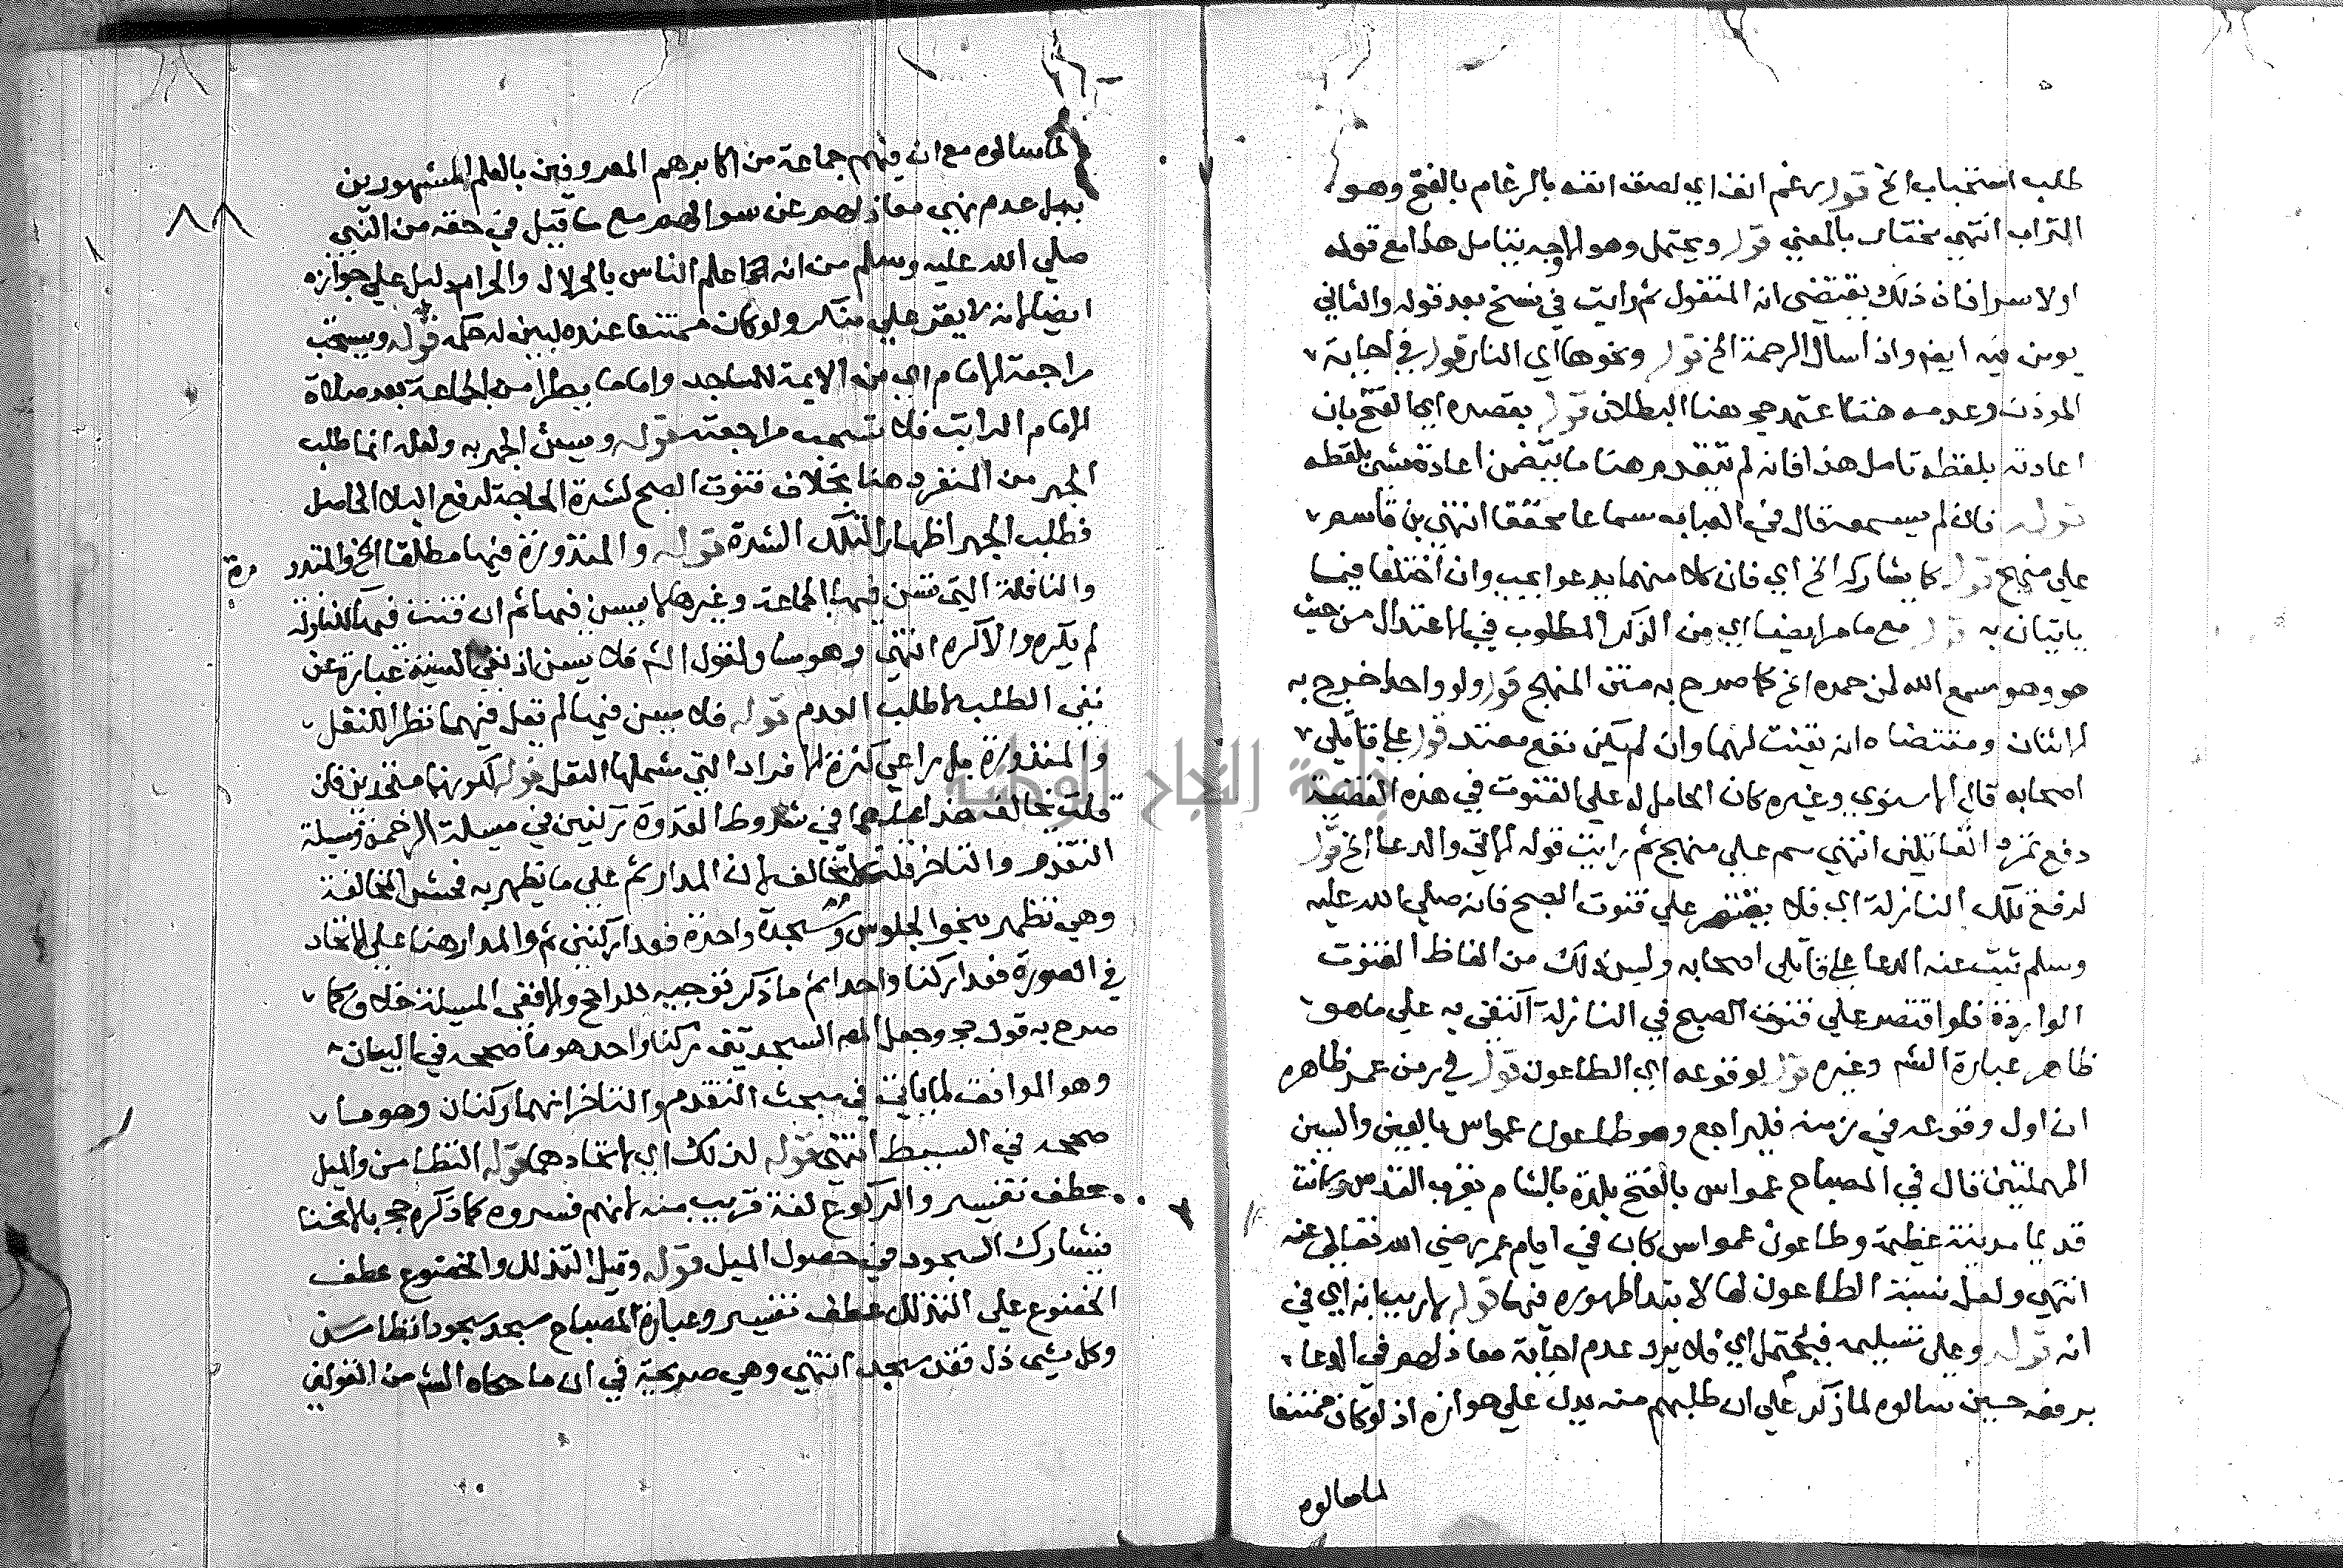 طلب استحباب الخ قوله رغم انف اي لصق انفه بالرغام بالفتح وهو
التراب انتهي مختار بالمعني قوله ويحتمل وهو الاوجه يتامل هذا مع قوله
اولا سرا فان ذلك يقتضي انه المنقول ثم رايت في نسخ بعد قوله والثاني
يومن فيه ايضا واذا سال الرحمة الخ قوله ونحوها اي النار قوله في اجابة
الموذن وعدمه هنا اعتمد حج هنا البطلان قوله بقصده اي الفتح بان
اعادته بلفظه تامل هذا فانه لم يتقدم هنا ما يتضمن اعادة شي بلفظه
قوله فان لم يسمعه قال في العباب سماعا محققا انتهي بن قاسم
علي منهج قوله كما يشاركه الخ اي فان كلا منهما يدعوا بجيب وان اختلفا فيما
ياتيان به قوله مع ما مر ايضا اي من الذكر المطلوب في الاعتدال من حيث
هو وهو سمع الله لمن حمده الخ كما صرح به متن المنهج قوله ولو واحدا خرج به
الاثنان ومقتضاه انه يقنت لهما وان لم يكن نفع معتد قوله علي قاتلي
اصحابه قال الاسنوي وغيره كان الحامل له علي القنوت في هذه القضية
دفع تمرد القاتلين انتهي سم علي منهج ثم رايت قوله الاتي والدعا الخ قوله
لرفع تلك النازلة اي فلا يقتصر علي قنوت الصبح فانه صلي الله عليه
وسلم ثبت عنه الدعا علي قاتلي اصحابه وليس ذلك من الفاظ القنوت
الواردة فلو اقتصر علي قنوت الصبح في النازلة اكتفي به علي ما هو
ظاهر عبارة الشم وغيره قوله لوقوعه اي الطاعون قوله في زمن عمر ظاهره
ان اول وقوعه في زمنه فليراجع وهو طاعون عمواس بالعين والسين
المهملتين قال في المصباح عمواس بالفتح بلدة بالشام بقرب القدس وكانت
قديما مدينة عظيمة وطاعون عمواس كان في ايام عمر رضي الله تعالي عنه
انتهي ولعل نسبة الطاعون لها لابتدا ظهوره فيها قوله لا ريب انه اي في
انه قوله وعلي تسليمه فيحتمل اي فلا يرد عدم اجابة معاذ لهم في الدعا
برفعه حين سالوه لما ذكر علي ان طلبهم منه يدل علي جوازه اذ لو كان ممتنعا
لما سالوه
لما سالوه مع ان فيهم جماعة من اكابرهم المعروفين بالعلم المشهورين
بل عدم نهي معاذ لهم عن سوالهم مع ما قيل في حقه من النبي
صلي الله عليه وسلم من انه اعلم الناس بالحلال والحرام دليل علي جوازه
ايضا لانه لا يقر علي منكر ولو كان ممتنعا عنده لبين له حكمه قوله ويستحب
مراجعة الامام اي من الايمة للمساجد واما ما يطرا من الجماعة بعد صلاة
الامام الراتب فلا تستحب مراجعته قوله ويسن الجهر به ولعله انما طلب
الجهر من المنفرد هنا بخلاف قنوت الصبح لشدة الحاجة لرفع البلا الحاصل
فطلب الجهر اظهارا لتلك الشدة قوله والمنذورة فيها مطلقا الخ والمنذورة
والنافلة التي تسن فيها الجماعة وغيرها لا يسن فيها ثم ان قنت فيها لنازلة
لم يكره والا كره انتهي وهو مساو لقول الشم فلا يسن اذ نفي السنية عبارة عن
نفي الطلب لا طلب العدم قوله فلا يسن فيها لم نقل فيهما نظرا للنفل
والمنذورة بل راعي كثرة الافراد التي شملها النفل قوله لكونهما متحدين فان
قلت يخالف هذا عدهما في شروط القدوة ركنين في مسيلة الزحمة ومسيلة
التقدم والتاخر قلت لا يخالف لان المدار ثم علي ما تظهر به فحش المخالفة
وهي تظهر بنحو الجلوس وسجدة واحدة فعدا ركنين ثم والمدار هنا علي الاتحاد
في الصورة فعدا ركنا واحدا ثم ما ذكر توجيه للراجح والا ففي المسيلة خلاف كما
صرح به قول حج وجعل المص السجدتين ركنا واحدا هو ما صححه في البيان
وهو الموافق لما ياتي في مبحث التقدم والتاخر انهما ركنان وهو ما
صححه في البسيط انتهي قوله لذلك اي لاتحادهما قوله التطامن والميل
عطف تفسير والركوع لغة قريب منه لانهم فسروه كما ذكره حج بالانحنا
فيشارك السجود في حصول الميل قوله وقيل التذلل والخضوع عطف
الخضوع علي التذلل عطف تفسير وعبارة المصباح سجد سجودا تطامن
وكل شي ذل فقد سجد انتهي وهي صريحة في ان ما حكاه الشم من القولين